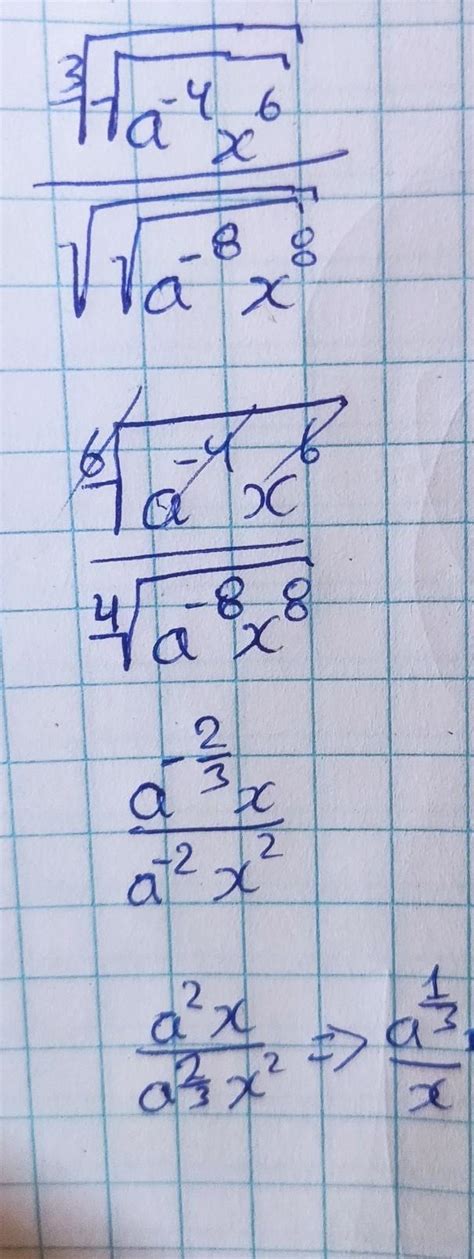 ∛√(a⁻⁴x⁶)
√√(a⁻⁸x⁸)
⁶√(a⁻⁴x⁶)
⁴√(a⁻⁸x⁸)
a^(-2/3)x
a⁻²x²
a²x / a^(2/3)x² => a^(1/3) / x